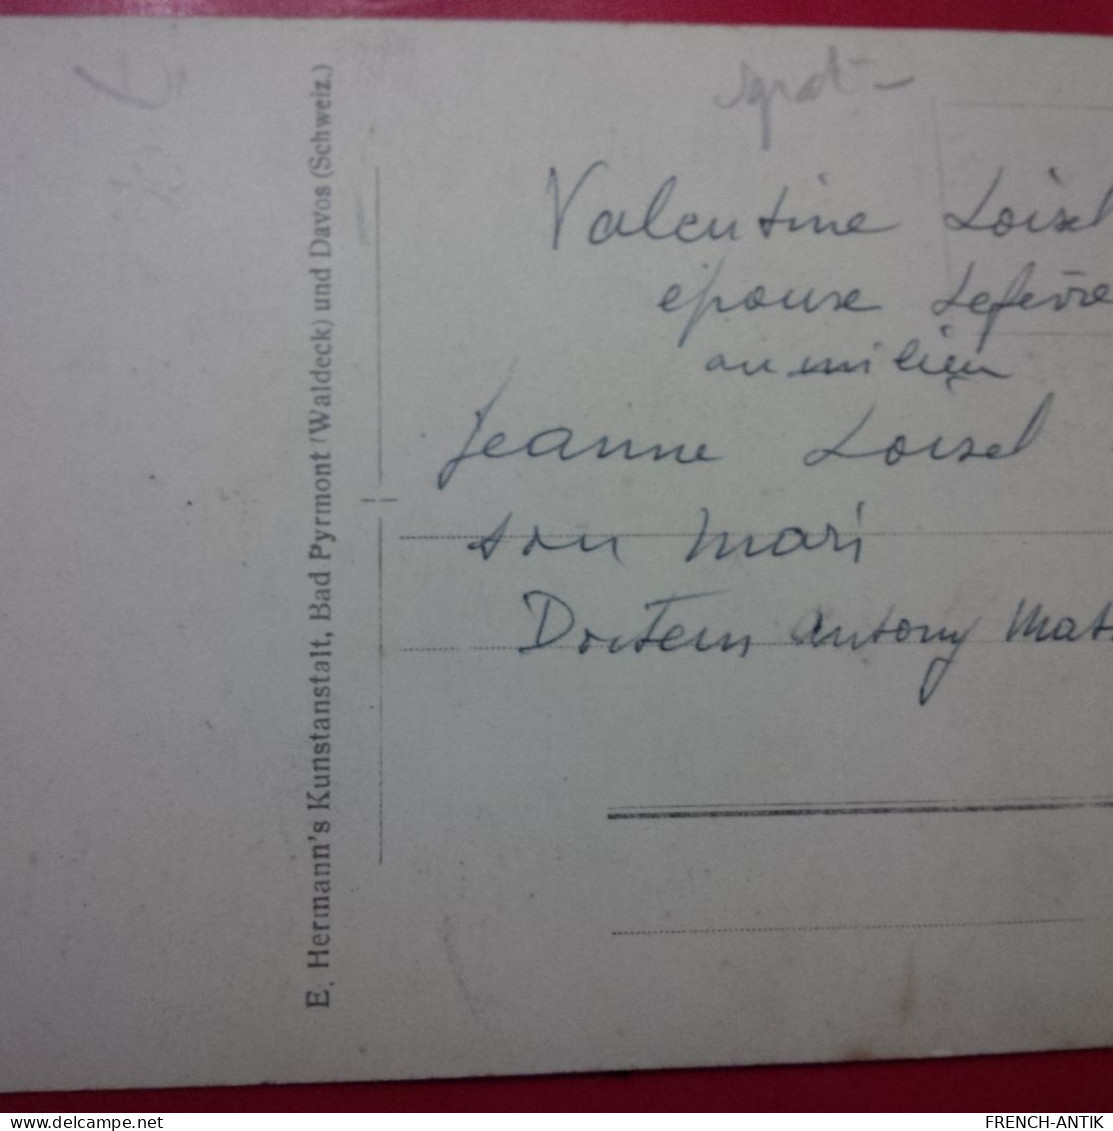 E. Hermann's Kunstanstalt, Bad Pyrmont (Waldeck) und Davos (Schweiz.)
Valentine Loisel
épouse Lefèvre
au milieu
Jeanne Loisel
son mari
Docteur Antony Mat
delcampe.net
FRENCH-ANTIK